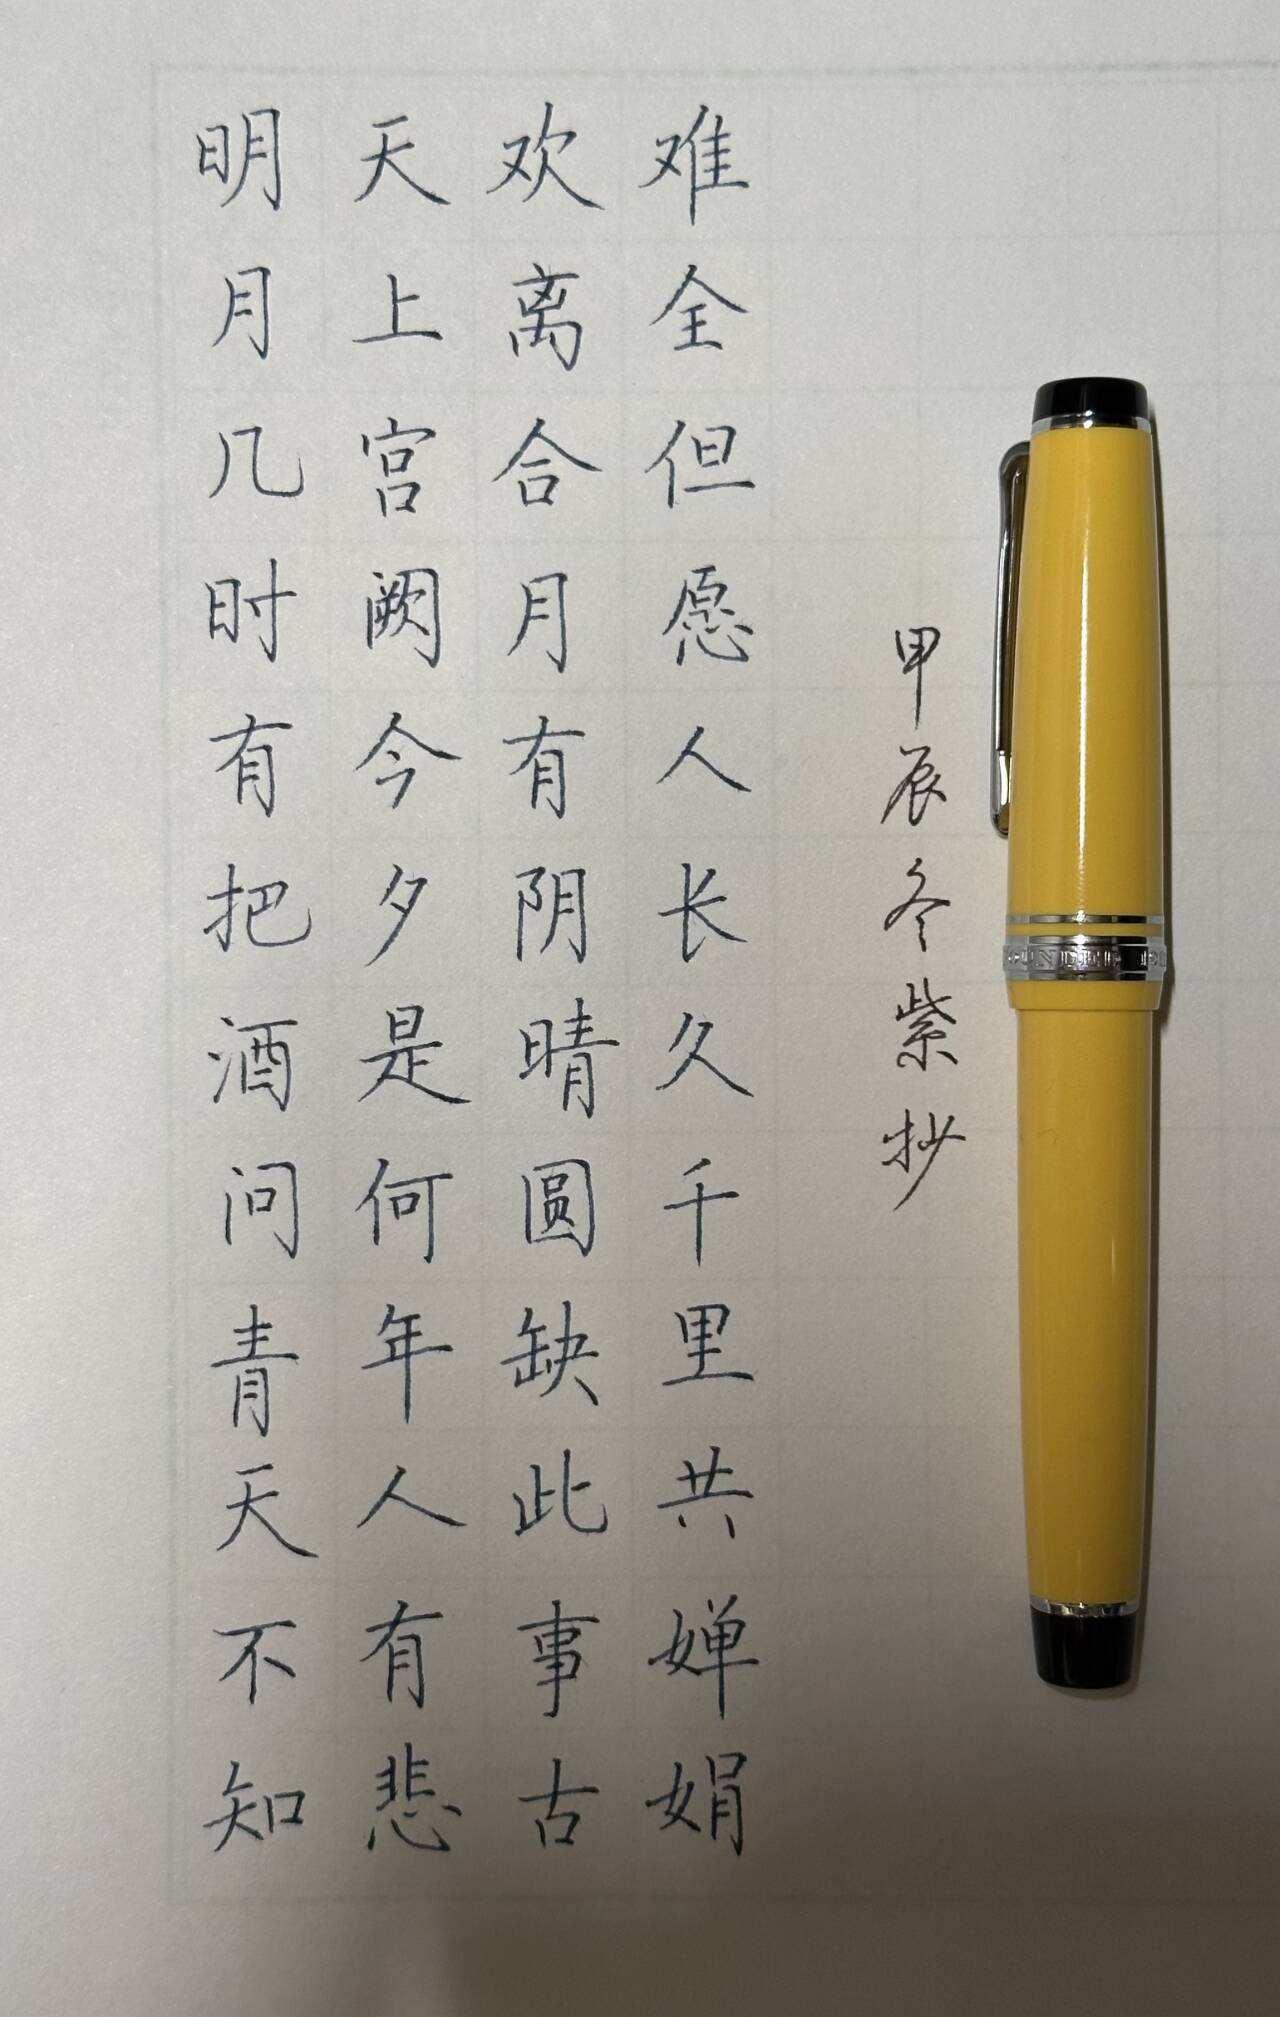 明月几时有把酒问青天不知
天上宫阙今夕是何年人有悲
欢离合月有阴晴圆缺此事古
难全但愿人长久千里共婵娟
甲辰冬紫抄